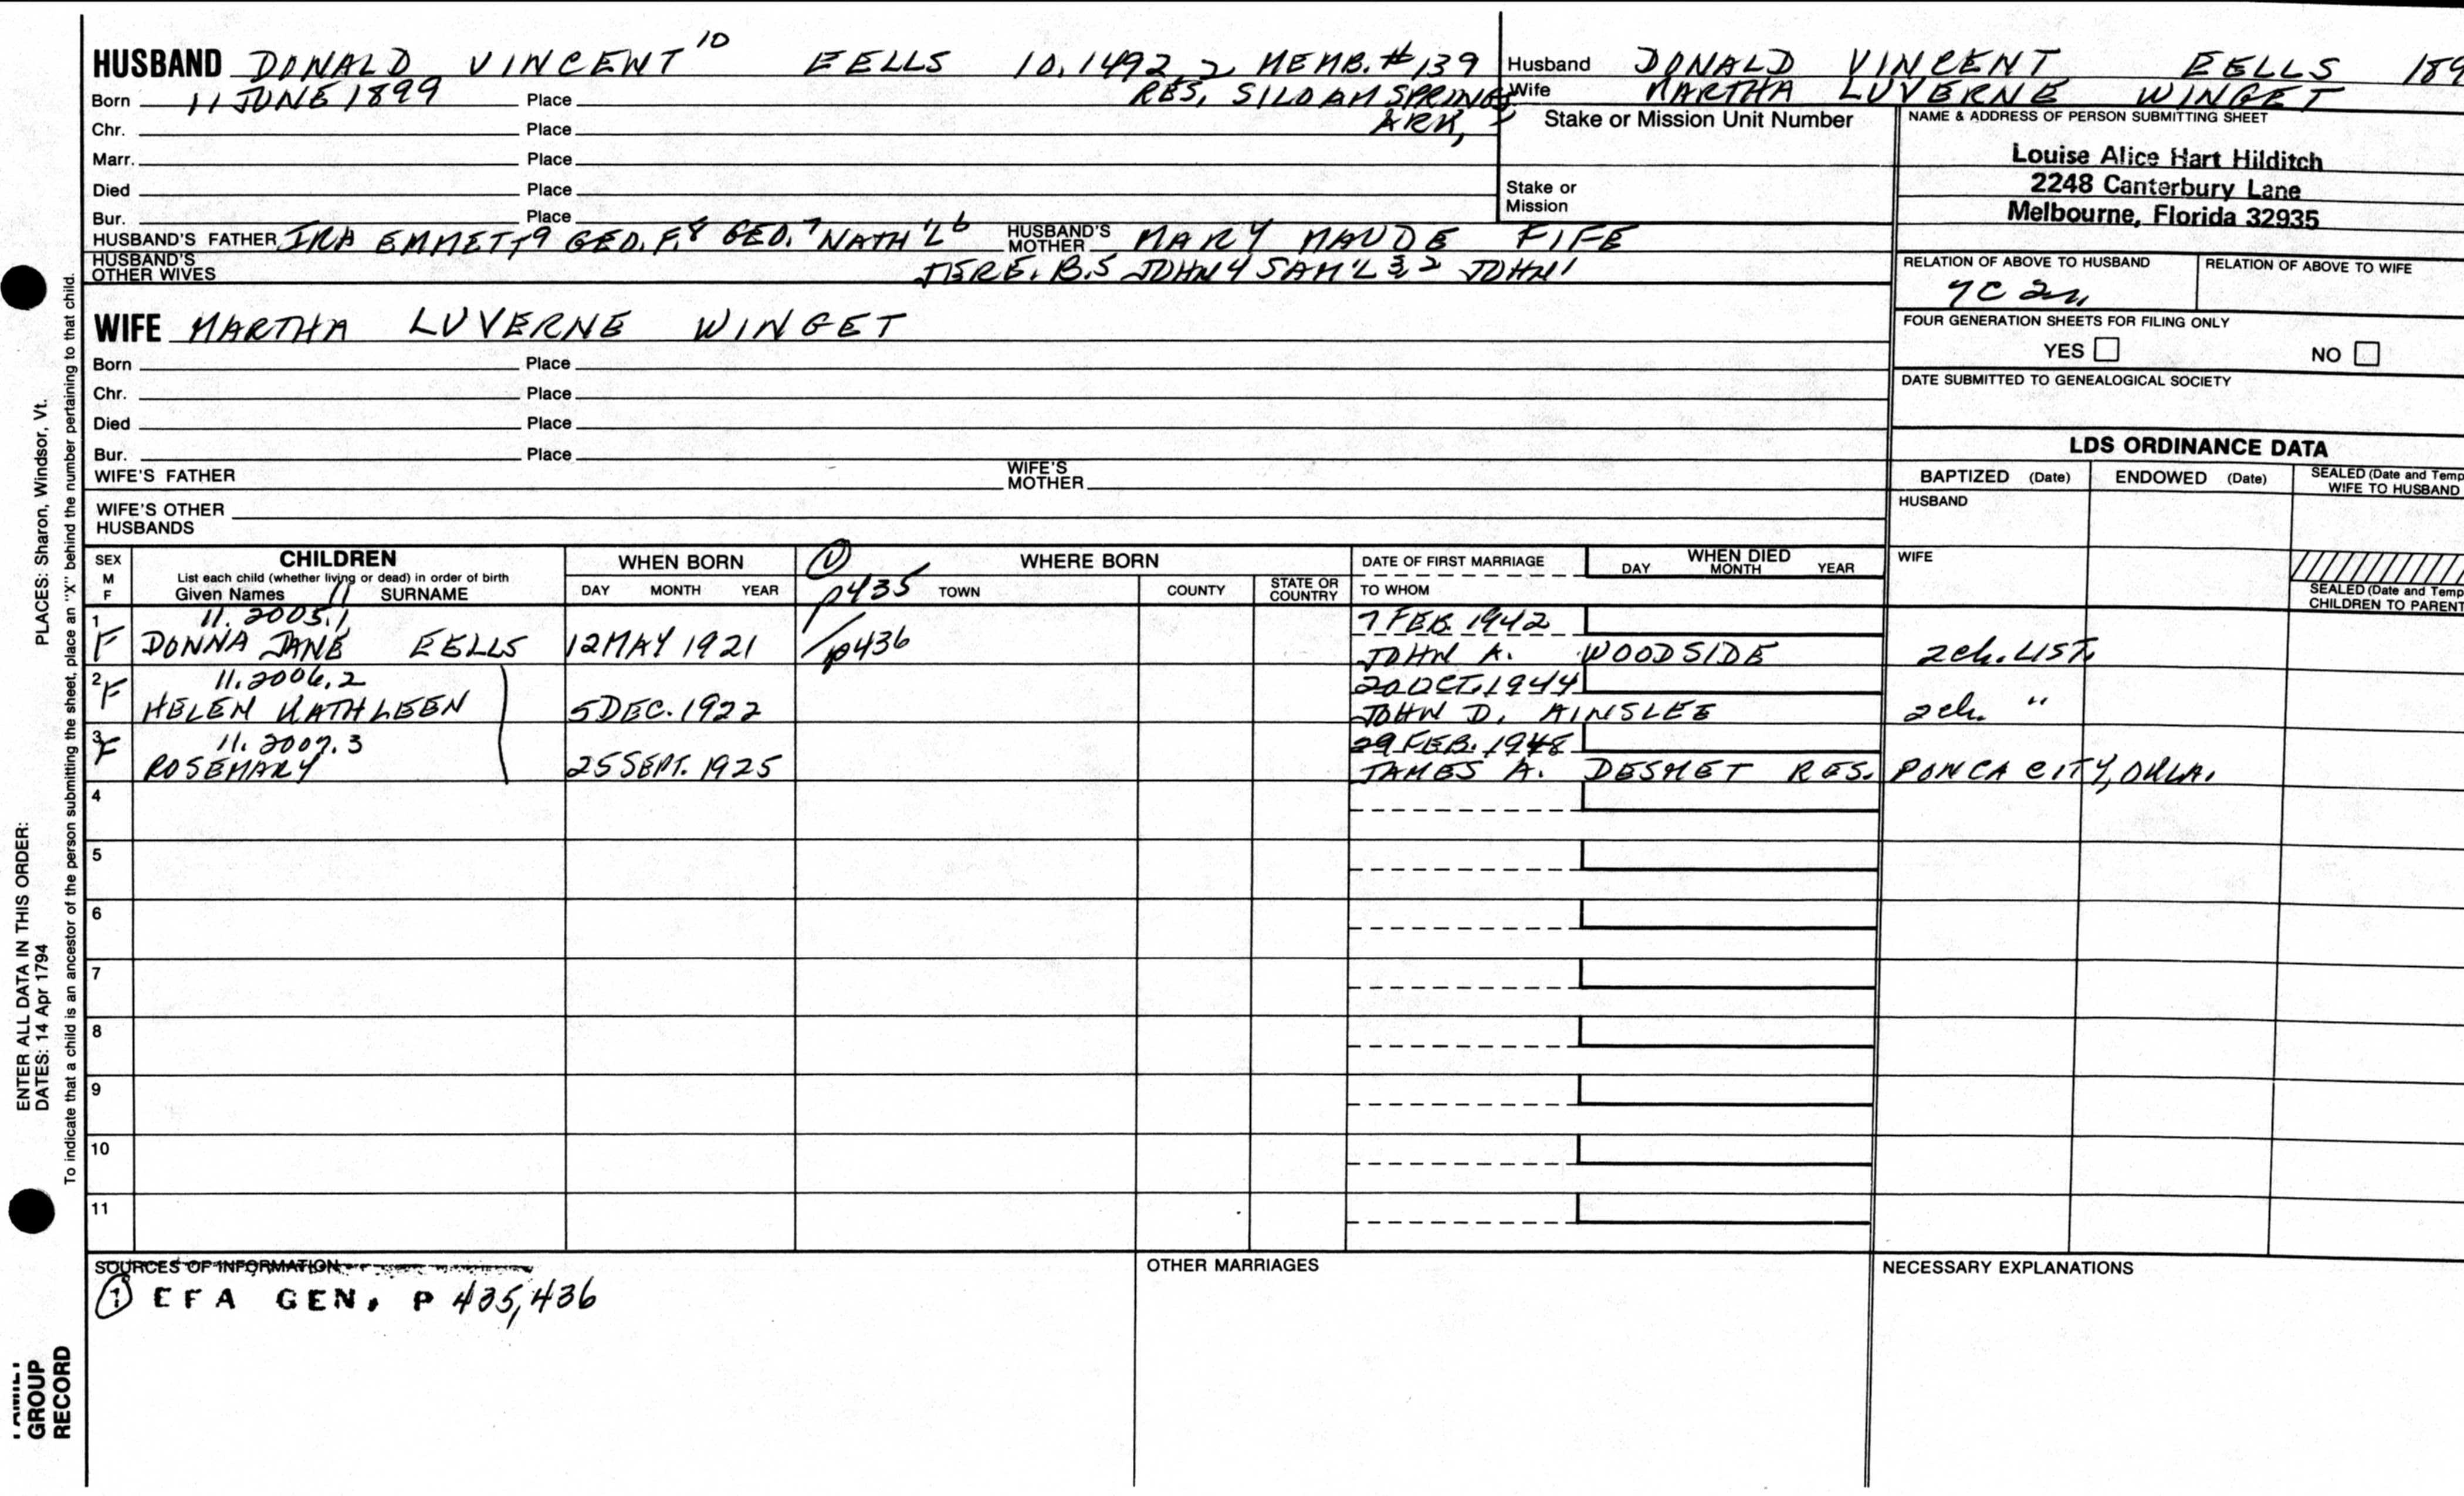 HUSBAND DONALD VINCENT 10 EELLS 10.1492.2 MEMB. # 139
Born 11 JUNE 1899 Place RES. SILOAM SPRINGS
ARK,
Chr. Place
Marr. Place
Died Place
Bur. Place
HUSBAND'S FATHER IRA EMMETT 9 GEO. F. 8 GEO. 7 NATH'L 6 HUSBAND'S MOTHER MARY MAUDE FIFE
HUSBAND'S OTHER WIVES JERE. B. 5 JOHN 4 SAM'L 3, 2 JOHN 1
WIFE MARTHA LUVERNE WINGET
Born Place
Chr. Place
Died Place
Bur. Place
WIFE'S FATHER WIFE'S MOTHER
WIFE'S OTHER HUSBANDS
Husband DONALD VINCENT EELLS 189
Wife MARTHA LUVERNE WINGET
Stake or Mission Unit Number
Stake or Mission
NAME & ADDRESS OF PERSON SUBMITTING SHEET
Louise Alice Hart Hilditch
2248 Canterbury Lane
Melbourne, Florida 32935
RELATION OF ABOVE TO HUSBAND RELATION OF ABOVE TO WIFE
7C 2r
FOUR GENERATION SHEETS FOR FILING ONLY
YES NO
DATE SUBMITTED TO GENEALOGICAL SOCIETY
LDS ORDINANCE DATA
BAPTIZED (Date) ENDOWED (Date) SEALED (Date and Temp
WIFE TO HUSBAND
HUSBAND
WIFE
SEALED (Date and Temp
CHILDREN TO PARENT
SEX M F CHILDREN WHEN BORN 1 WHERE BORN DATE OF FIRST MARRIAGE WHEN DIED
List each child (whether living or dead) in order of birth
Given Names 11 SURNAME DAY MONTH YEAR p435 TOWN COUNTY STATE OR COUNTRY TO WHOM DAY MONTH YEAR
1 11.2005.1 7 FEB. 1942
F DONNA JANE EELLS 12 MAY 1921 p436 JOHN A. WOODSIDE 2ch. LIST.
2 F 11.2006.2 20 OCT. 1944
HELEN KATHLEEN 5 DEC. 1922 JOHN D. AINSLEE 2ch. "
3 F 11.2007.3 29 FEB. 1948
ROSEMARY 25 SEPT. 1925 JAMES A. DESMET RES. PONCA CITY, OKLA.
4
5
6
7
8
9
10
11
SOURCES OF INFORMATION OTHER MARRIAGES NECESSARY EXPLANATIONS
1 EFA GEN. P 435, 436
ENTER ALL DATA IN THIS ORDER:
DATES: 14 Apr 1794 PLACES: Sharon, Windsor, Vt.
To indicate that a child is an ancestor of the person submitting the sheet, place an "X" behind the number pertaining to that child.
FAMILY
GROUP
RECORD